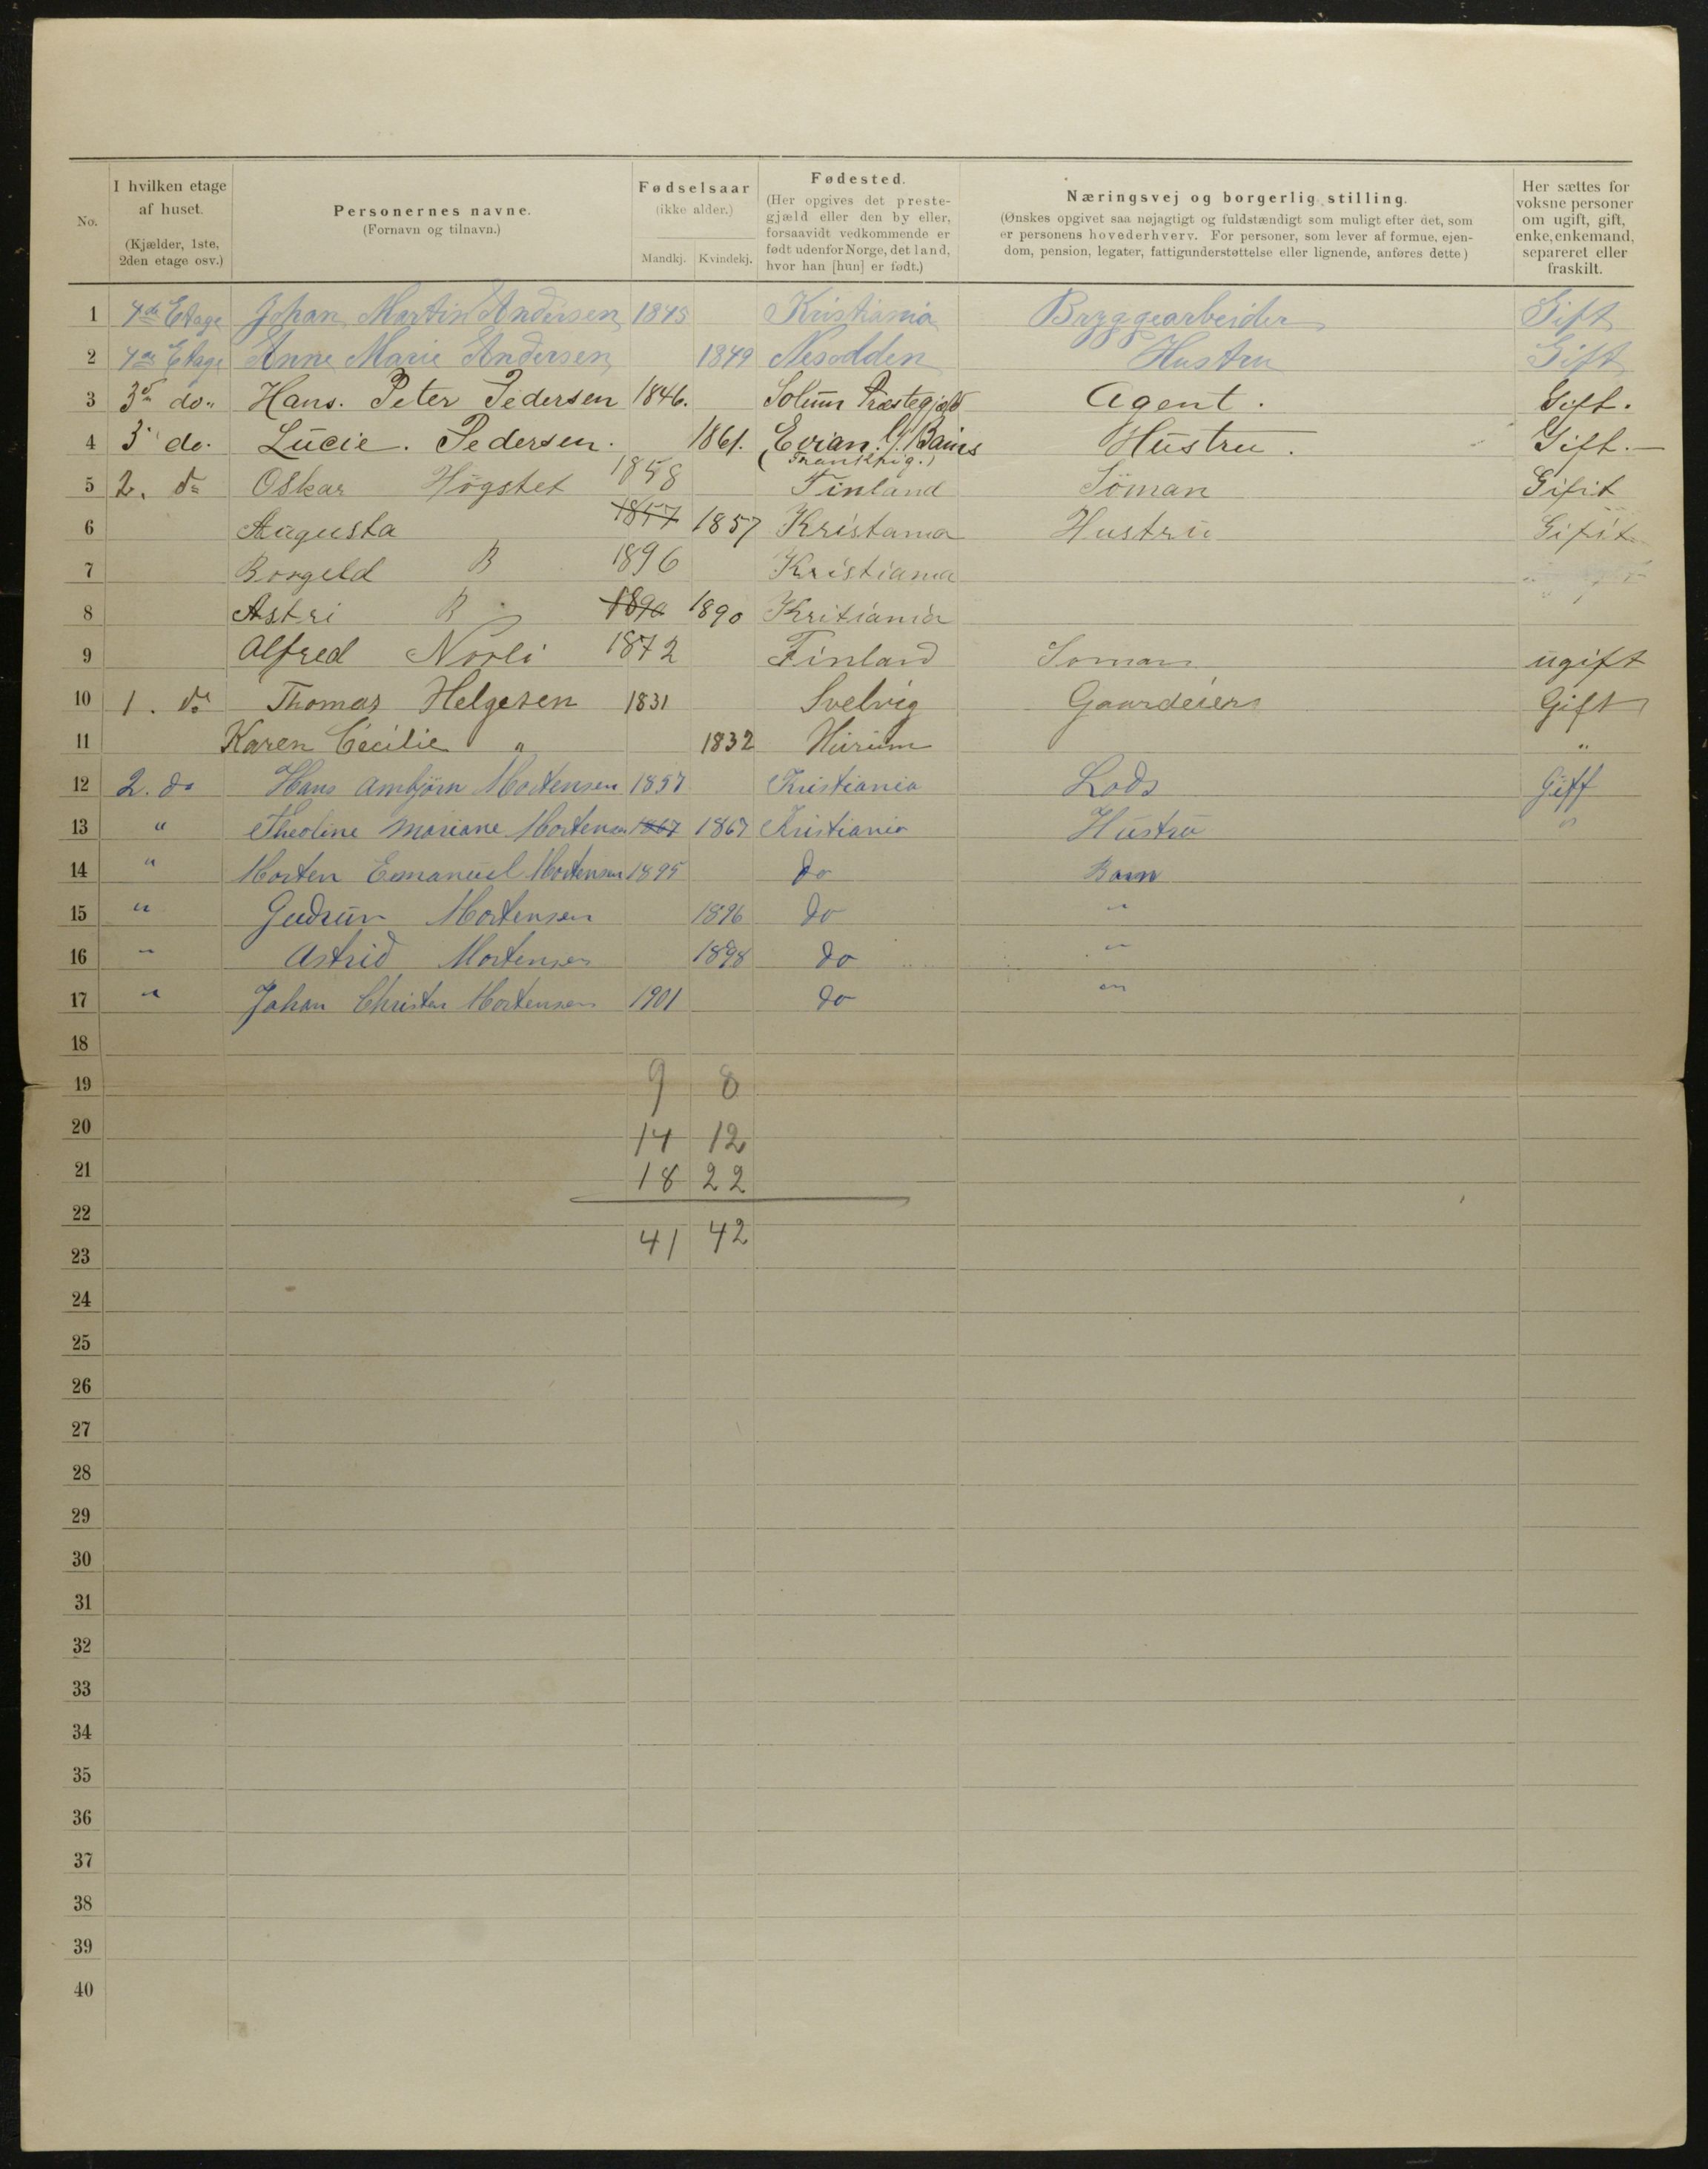 No.
I hvilken etage
af huset.
(Kjælder, 1ste,
2den etage osv.)
Personernes navne.
(Fornavn og tilnavn.)
Fødselsaar
(ikke alder.)
Mandkj. Kvindekj.
Fødested.
(Her opgives det preste-
gjæld eller den by eller,
forsaavidt vedkommende er
født udenfor Norge, det land,
hvor han [hun] er født.)
Næringsvej og borgerlig stilling.
(Ønskes opgivet saa nøjagtigt og fuldstændigt som muligt efter det, som
er personens hovederhverv. For personer, som lever af formue, ejen-
dom, pension, legater, fattigunderstøttelse eller lignende, anføres dette.)
Her sættes for
voksne personer
om ugift, gift,
enke, enkemand,
separeret eller
fraskilt.
1 4de Etage Johan Martin Andersen 1845 Kristiania Bryggearbeider Gift
2 4de Etage Anne Marie Andersen 1849 Nesodden Hustru Gift
3 3die do. Hans. Peter Pedersen 1846. Solum Præstegjeld Agent. Gift.
4 3 do. Lucie. Pedersen. 1861. Evian. Bains Hustru. Gift.
(Frankrig.)
5 2. do Oskar Högstet 1858 Finland Söman Gifit
6 Augusta 1857 1857 Kristania Hustru Gifit
7 Borgeld B 1896 Kristiania
8 Astri B 1890 1890 Kritiania
9 Alfred Norli 1872 Finland Soman ugift
10 1. do Thomas Helgesen 1831 Svelvig Gaardeier Gift
11 Karen Cecilie " 1832 Hurum "
12 2. do Hans Ambjørn Mortensen 1857 Kristiania Lods Gift
13 " Theoline Mariane Mortensen 1867 1867 Kristiania Hustru "
14 " Morten Emanuel Mortensen 1895 do Barn
15 " Gudrun Mortensen 1896 do "
16 " Astrid Mortensen 1898 do "
17 " Johan Christen Mortensen 1901 do "
18
19 9 8
20 14 12
21 18 22
22
23 41 42
24
25
26
27
28
29
30
31
32
33
34
35
36
37
38
39
40